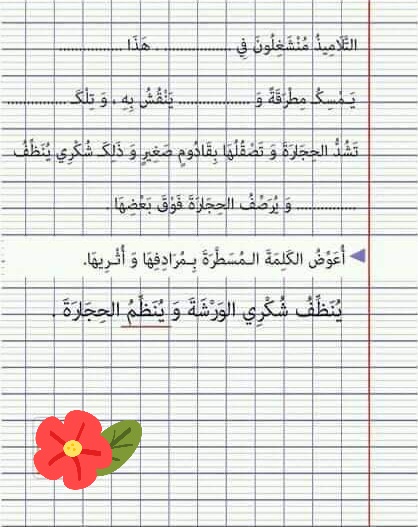 التَّلَامِيذُ مُنْشَغِلُونَ فِي .................. . هَذَا .................
يَـمْسِكُ مِطْرَقَةً وَ ................... يَنْقُشُ بِهِ ، وَ تِلْكَ ................
تَشُدُّ الحِجَارَةَ وَ تَصْقُلُهَا بِقَادُومٍ صَغِيرٍ وَ ذَلِكَ شُكْرِي يُنَظِّفُ
................ وَ يُرَصِّفُ الحِجَارَةَ فَوْقَ بَعْضِهَا .
أُعَوِّضُ الكَلِمَةَ الـمُسَطَّرَةَ بِـمُرَادِفِهَا وَ أُثْـرِيهَا.
يُنَظِّفُ شُكْرِي الوَرْشَةَ وَ يُنَظِّمُ الحِجَارَةَ .